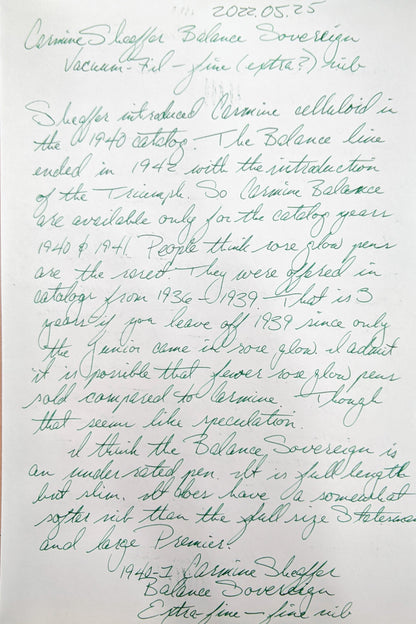 2022.05.25
Carmine Sheaffer Balance Sovereign
Vacuum-Fil - fine (extra?) nib
Sheaffer introduced Carmine celluloid in
the 1940 catalog. The Balance line
ended in 1942 with the introduction
of the Triumph. So Carmine Balance
are available only for the catalog years
1940 & 1941. People think rose glow pens
are the rarest. They were offered in
catalogs from 1936-1939. That is 3
years if you leave off 1939 since only
the Junior came in rose glow. I admit
it is possible that fewer rose glow pens
sold compared to Carmine. Though
that seems like speculation.
I think the Balance Sovereign is
an under rated pen. It is full length
but slim. It does have a somewhat
softer nib than the full size Statesman
and large Premier.
Carmine Sheaffer
Balance Sovereign
Extra-fine - fine nib